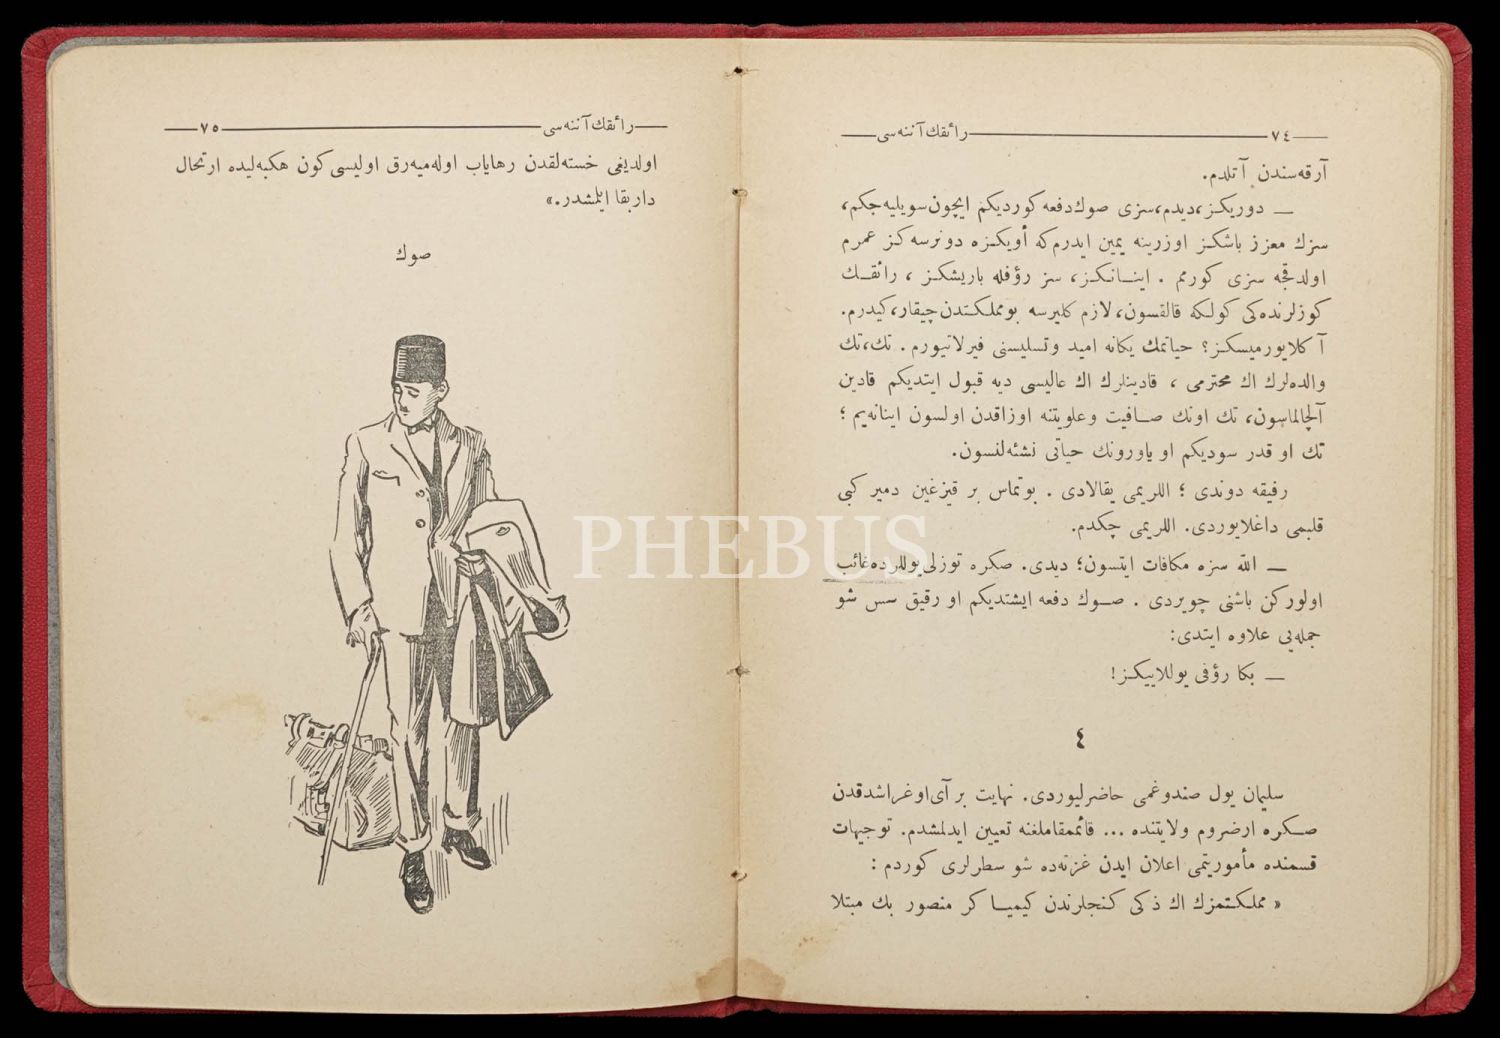 ٧٤ رائقك آننه‌سی
آرقه‌سندن آتلدم.
— دوریكز، دیدم، سزی صوك دفعه كوردیكم ایچون سویلیه‌جكم،
سزك معزز باشكز اوزرینه یمین ایدرم كه أویكزه دونرسه‌كز عمرم
اولدقجه سزی كورمم . اینـانـكز، سز رؤفله باریشكز ، رائقـك
كوزلرنده‌كی كولكه قالقسون، لازم كلیرسه بومملكتدن چیقار، كیدرم.
آكلایورمیسكز؟ حیاتمك یكانه امید و تسلیسنی فیرلاتیورم . تك، تك
والده‌لرك اك محترمی ، قادینلرك اك عالیسی دیه قبول ایتدیكم قادین
آلچالماسون، تك اونك صـافیت و علویتنه اوزاقدن اولسون اینانه‌یم ؛
تك او قدر سودیكم او یاورونك حیاتی نشئه‌لنسون.
رفیقه دوندی ؛ اللریمی یقالادی . بوتماس بر قیزغین دمیر كبی
قلبمی داغلایوردی. اللریمی چكدم.
— الله سزه مكافات ایتسون؛ دیدی. صكره توزلی یوللرده غائب
اولوركن باشنی چویردی . صـوك دفعه ایشتدیكم او رقیق سس شو
جمله‌یی علاوه ایتدی:
— بكا رؤفی یوللاییكز!
٤
سلیمان یول صندوغمی حاضرلیوردی. نهایت بر آی اوغراشدقدن
صـكره ارضروم ولایتنده ... قائممقاملغنه تعیین ایدلمشدم. توجیهات
قسمنده مأموریتمی اعلان ایدن غزته‌ده شو سطرلری كوردم :
« مملكتمزك اك ذكی كنجلرندن كیمیـا كر منصور بك مبتلا
رائقك آننه‌سی ٧٥
اولدیغی خسته‌لقدن رهایاب اوله‌میه‌رق اولیسی كون هكبه‌لیده ارتحال
داربقا ایلمشدر.»
صوك
PHEBUS